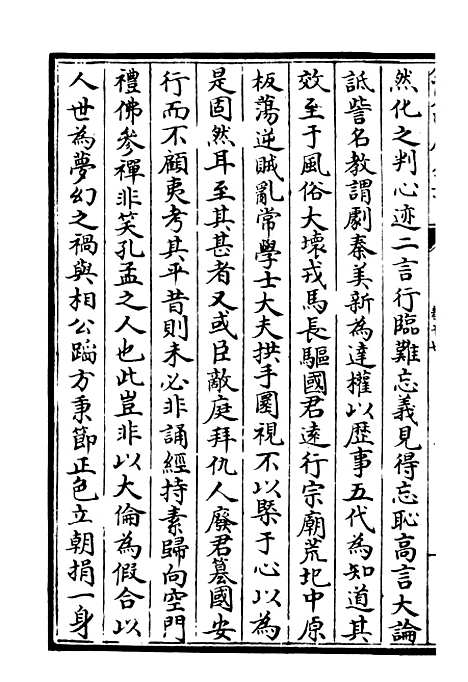 然化之判心迹二言行臨難忘義見得忘恥高言大論
詆訾名教謂劇秦美新為達權以歴事五代為知道其
效至于風俗大壞戎馬長驅國君逺行宗廟荒圮中原
板蕩逆賊亂常學士大夫拱手圜視不以槩于心以為
是固然耳至其甚者又或臣敵庭拜仇人廢君簒國安
行而不顧夷考其平昔則未必非誦經持素歸向空門
禮佛參禪非笑孔孟之人也此豈非以大倫為假合以
人世為夢幻之禍與相公蹈方秉節正色立朝捐一身